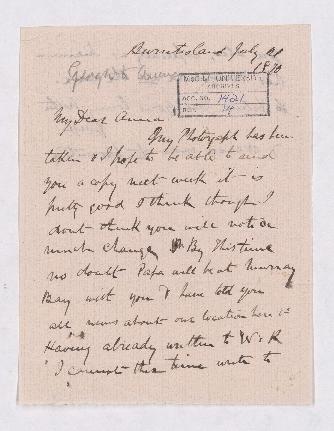 Burntisland July 21
1870
George to Anna
McGILL UNIVERSITY
ARCHIVES
ACC. NO. 1421
REF.
My Dear Anna
My Photograph has been
taken & I hope to be able to send
you a copy next week it is
pretty good I think though I
dont think you will notice
much change By this time
no doubt Papa will be at Murray
Bay with you & have told you
all news about our location here &c
Having already written to W & R
I cannot this time write to